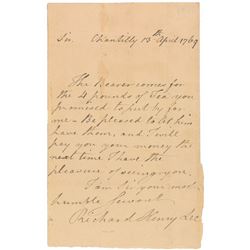 Sir, Chantilly 15th April 1769
The Bearer comes for
the 4 pounds of Tea you
promised to put by for
me – Be pleased to let him
have them, and I will
pay you your money the
next time I have the
pleasure of seeing you.
I am Sir your most
humble servant
Richard Henry Lee